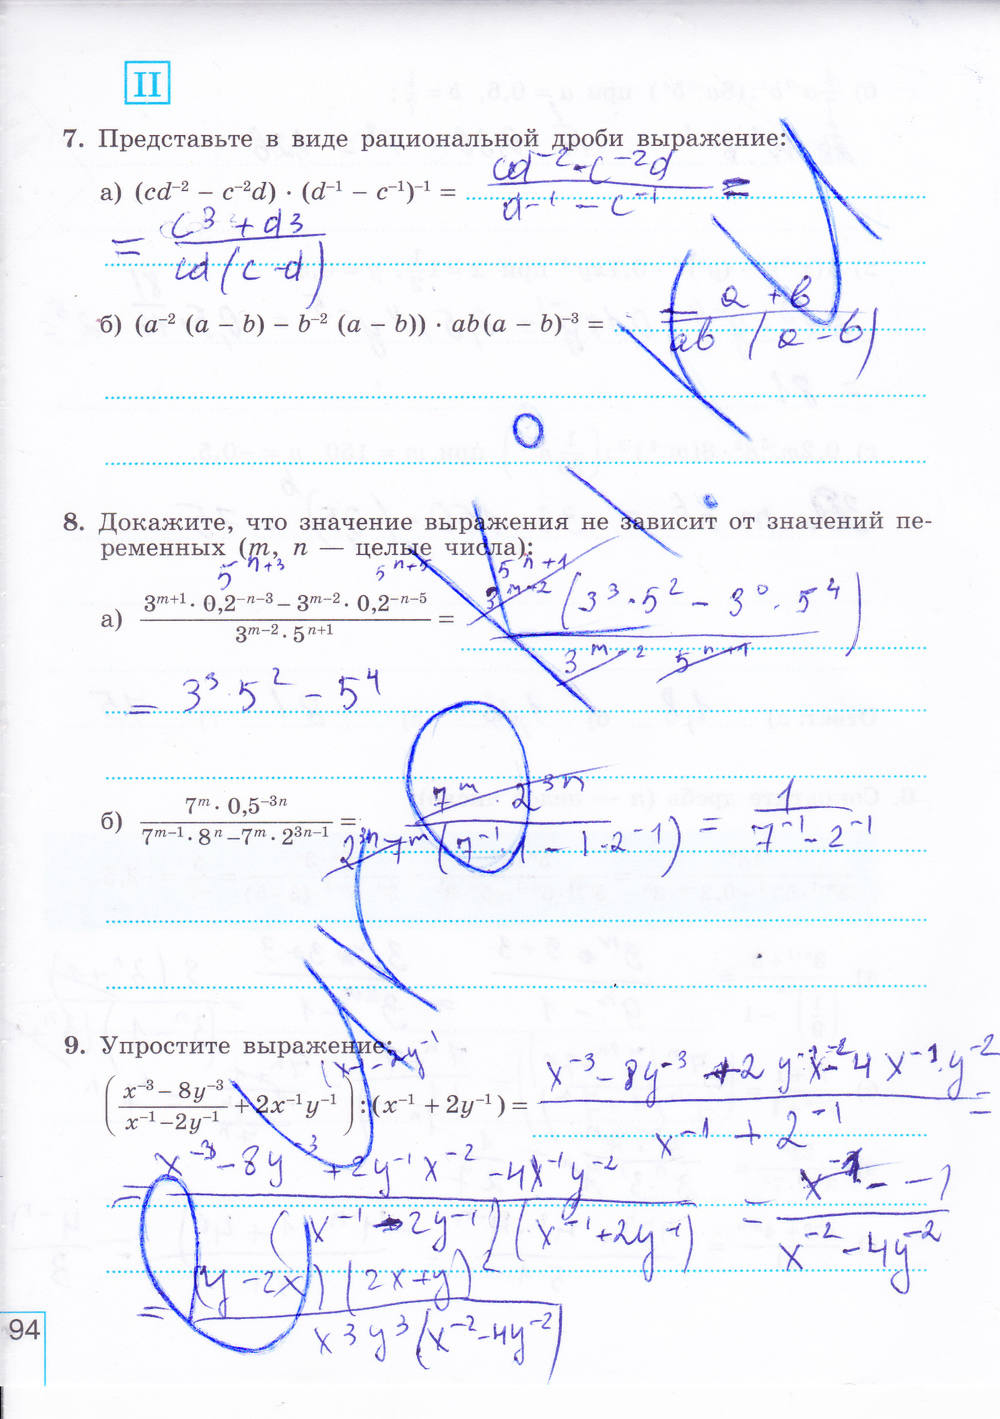 II
7. Представьте в виде рациональной дроби выражение:
а) (cd⁻² − c⁻²d) · (d⁻¹ − c⁻¹)⁻¹ = (cd⁻² - c⁻²d)/(d⁻¹ − c⁻¹) =
= (c3 + d3)/(cd(c-d))
б) (a⁻² (a − b) − b⁻² (a − b)) · ab(a − b)⁻³ = − (a + b)/(ab(a − b))
8. Докажите, что значение выражения не зависит от значений пе-
ременных (m, n — целые числа):
5ⁿ⁺³ 5ⁿ⁺⁵
а) (3ᵐ⁺¹ · 0,2⁻ⁿ⁻³ − 3ᵐ⁻² · 0,2⁻ⁿ⁻⁵)/(3ᵐ⁻² · 5ⁿ⁺¹) = 3ᵐ⁻² 5ⁿ⁺¹ (3³ · 5² − 3⁰ · 5⁴)/(3ᵐ⁻² 5ⁿ⁺¹)
= 3³ 5² − 5⁴
б) (7ᵐ · 0,5⁻³ⁿ)/(7ᵐ⁻¹ · 8ⁿ − 7ᵐ · 2³ⁿ⁻¹) = (7ᵐ 2³ⁿ)/(2³ⁿ 7ᵐ (7⁻¹ · 1 − 1 · 2⁻¹)) = 1/(7⁻¹ − 2⁻¹)
9. Упростите выражение:
((x⁻³ − 8y⁻³)/(x⁻¹ − 2y⁻¹) + 2x⁻¹y⁻¹) : (x⁻¹ + 2y⁻¹) = (x⁻³ − 8y⁻³ + 2y⁻¹x⁻² − 4x⁻¹y⁻²)/(x⁻¹ + 2⁻¹) =
= (x⁻³ − 8y⁻³ + 2y⁻¹x⁻² − 4x⁻¹y⁻²)/((x⁻¹ − 2y⁻¹)(x⁻¹ + 2y⁻¹))
= ((y − 2x)(2x + y)²)/(x3y³(x⁻² − 4y⁻²))
94